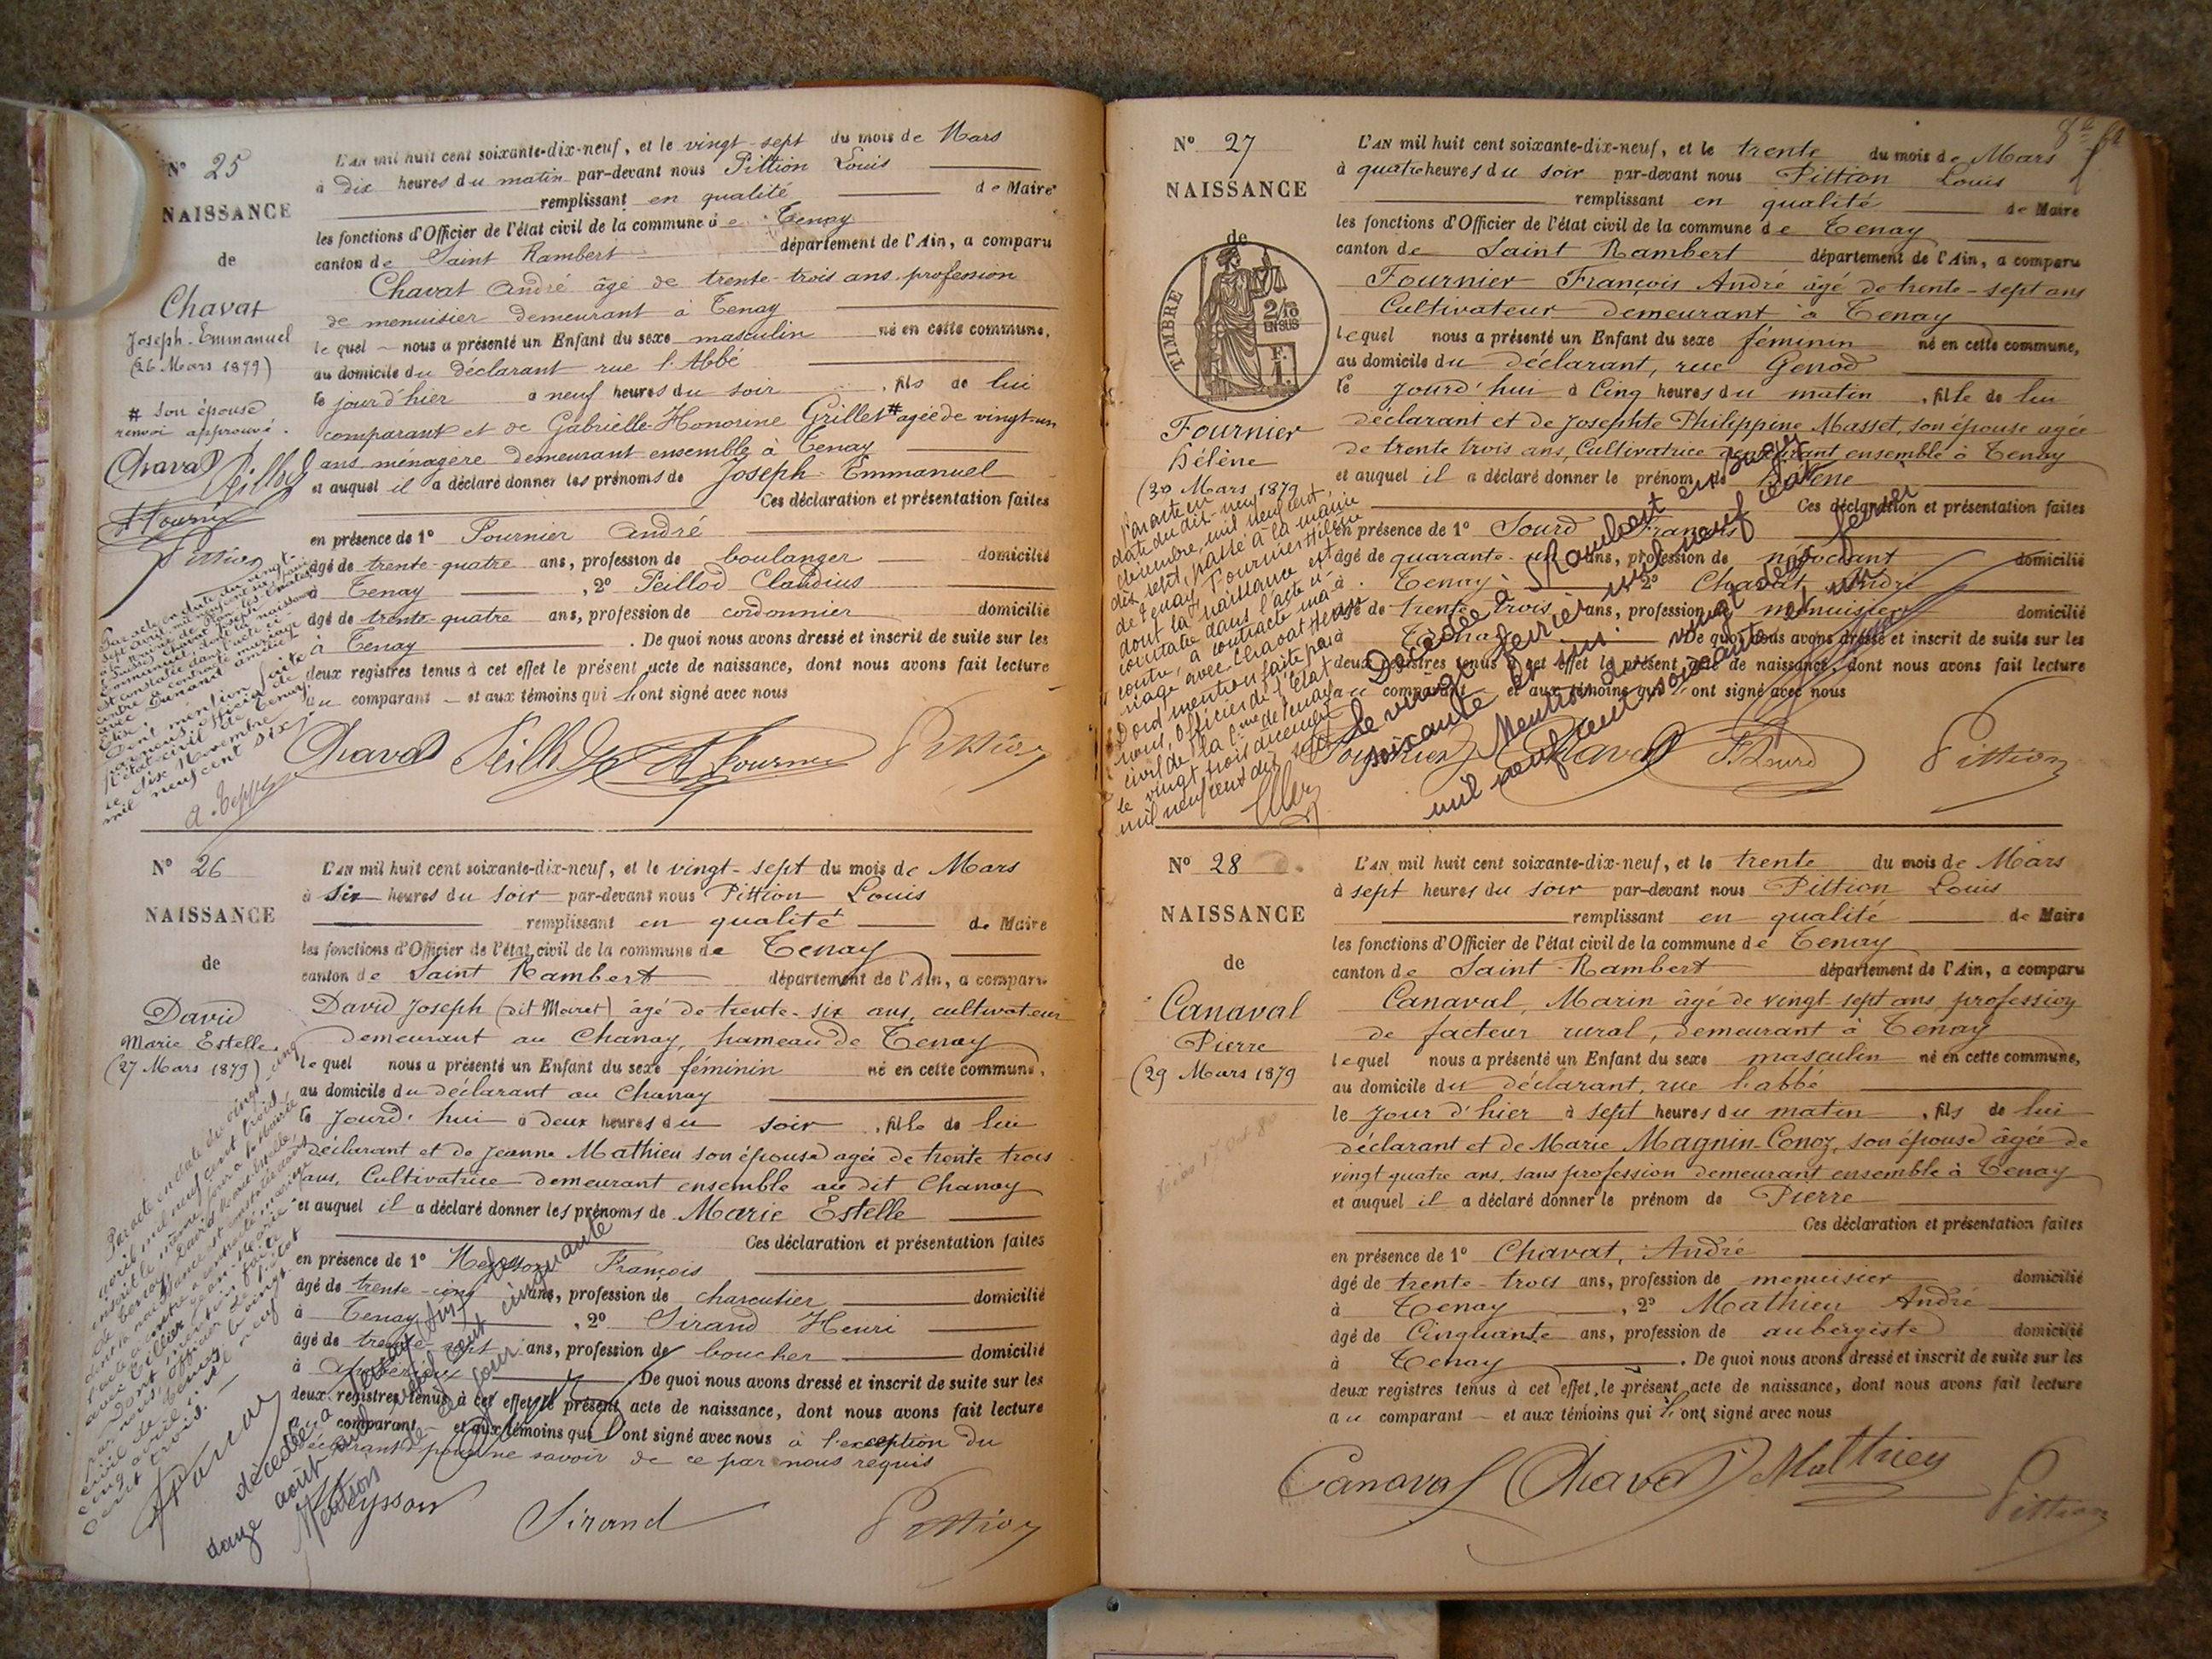 N° 25
NAISSANCE
de
Chavat
Joseph-Emmanuel
(26 Mars 1879)
# son épouse
renvoi approuvé.
Chavat Peillod
A Fournier
Pittion
L'AN mil huit cent soixante-dix-neuf, et le vingt-sept du mois de Mars
à dix heures du matin par-devant nous Pittion Louis
remplissant en qualité de Maire
les fonctions d'Officier de l'état civil de la commune de Tenay
canton de Saint Rambert département de l'Ain, a comparu
Chavat André âgé de trente-trois ans profession
de menuisier demeurant à Tenay
lequel nous a présenté un Enfant du sexe masculin né en cette commune,
au domicile du déclarant rue l'Abbé
le jour d'hier à neuf heures du soir, fils de lui
comparant et de Gabrielle-Honorine Grillet # agée de vingt-un
ans ménagère demeurant ensemble à Tenay
et auquel il a déclaré donner les prénoms de Joseph-Emmanuel
Ces déclaration et présentation faites
en présence de 1° Fournier André
âgé de trente-quatre ans, profession de boulanger domicilié
à Tenay, 2° Peillod Claudius
âgé de trente-quatre ans, profession de cordonnier domicilié
à Tenay. De quoi nous avons dressé et inscrit de suite sur les
deux registres tenus à cet effet le présent acte de naissance, dont nous avons fait lecture
au comparant et aux témoins qui l'ont signé avec nous
Par acte en date du vingt-
sept avril mil neuf cent six
Emmanuel, dont la naissance
est constatée dans l'acte ci
contre a contracté mariage
avec Durand
Elise
Dont mention faite
par nous officier de
l'état civil de Tenay
le six Novembre
mil neuf cent six
Chavat Peillod A Fournier Pittion
N° 26
NAISSANCE
de
David
Marie Estelle
(27 Mars 1879)
L'AN mil huit cent soixante-dix-neuf, et le vingt-sept du mois de Mars
à Six heures du soir par-devant nous Pittion Louis
remplissant en qualité de Maire
les fonctions d'Officier de l'état civil de la commune de Tenay
canton de Saint Rambert département de l'Ain, a comparu
David Joseph (dit Moiret) âgé de trente-six ans, cultivateur
demeurant au Chanay, hameau de Tenay
lequel nous a présenté un Enfant du sexe féminin né en cette commune,
au domicile du déclarant au Chanay
le Jourd'hui à deux heures du soir, fille de lui
déclarant et de Jeanne Mathieu son épouse agée de trente trois
ans, Cultivatrice demeurant ensemble au dit Chanay
et auquel il a déclaré donner les prénoms de Marie Estelle
Ces déclaration et présentation faites
en présence de 1° Meysson François
âgé de trente-cinq ans, profession de charcutier domicilié
à Tenay, 2° Sirand Henri
âgé de trente-sept ans, profession de boucher domicilié
à De quoi nous avons dressé et inscrit de suite sur les
deux registres tenus à cet effet le présent acte de naissance, dont nous avons fait lecture
au comparant et aux témoins qui l'ont signé avec nous à l'exception du
déclarant pour ne savoir de ce par nous requis
Par acte en date du vingt-cinq
avril mil neuf cent trois,
inscrit le même jour à la Mairie
dont la naissance est constatée dans
l'acte ci contre a contracté mariage
avec Cellier Jean-Marie
Dont mention faite
par nous, officier de l'état
civil de Tenay le vingt-
cinq avril mil neuf
cent trois.
décédée à Tenay (Ain) le
douze août mil neuf cent cinquante
Mention de ce jour
Meysson Sirand Pittion
N° 27
NAISSANCE
de
TIMBRE
2/10
EN SUS
Fournier
Hélène
(30 Mars 1879
L'AN mil huit cent soixante-dix-neuf, et le trente du mois de Mars
à quatre heures du soir par-devant nous Pittion Louis
remplissant en qualité de Maire
les fonctions d'Officier de l'état civil de la commune de Tenay
canton de Saint Rambert département de l'Ain, a comparu
Fournier François André agé de trente-sept ans
Cultivateur demeurant à Tenay
lequel nous a présenté un Enfant du sexe féminin né en cette commune,
au domicile du déclarant, rue Genod
le Jourd'hui à Cinq heures du matin, fille de lui
déclarant et de Josephte Philippine Masset, son épouse agée
de trente trois ans, Cultivatrice demeurant ensemble à Tenay
et auquel il a déclaré donner le prénom de Hélène
Ces déclaration et présentation faites
en présence de 1° Sourd François
âgé de quarante-un ans, profession de négociant domicilié
à Tenay, 2° Chavat André
âgé de trente trois ans, profession de menuisier domicilié
à Tenay. De quoi nous avons dressé et inscrit de suite sur les
deux registres tenus à cet effet le présent acte de naissance, dont nous avons fait lecture
au comparant et aux témoins qui l'ont signé avec nous
Par acte en
date du dix-neuf
décembre, mil neuf cent
dix sept, passé à la mairie
de Tenay, Fournier Hélène
dont la naissance est
constatée dans l'acte ci
contre, a contracté ma-
riage avec Chavat
Dont mention faite par
nous, Officier de l'état
civil de la Cne de Tenay
le vingt trois décembre
mil neuf cent dix sept
Décédée à St Rambert en Bugey
le vingt février mil neuf cent
soixante et un.
Mention du vingt deux février
mil neuf cent soixante et un
Fournier Chavat F. Sourd Pittion
N° 28
NAISSANCE
de
Canaval
Pierre
(29 Mars 1879
L'AN mil huit cent soixante-dix-neuf, et le trente du mois de Mars
à sept heures du soir par-devant nous Pittion Louis
remplissant en qualité de Maire
les fonctions d'Officier de l'état civil de la commune de Tenay
canton de Saint-Rambert département de l'Ain, a comparu
Canaval, Marin âgé de vingt-sept ans, profession
de facteur rural, demeurant à Tenay
lequel nous a présenté un Enfant du sexe masculin né en cette commune,
au domicile du déclarant, rue l'abbé
le Jour d'hier à sept heures du matin, fils de lui
déclarant et de Marie Magnin-Conoz, son épouse âgée de
vingt quatre ans, sans profession demeurant ensemble à Tenay
et auquel il a déclaré donner le prénom de Pierre
Ces déclaration et présentation faites
en présence de 1° Chavat, André
âgé de trente-trois ans, profession de menuisier domicilié
à Tenay, 2° Mathieu André
âgé de Cinquante ans, profession de aubergiste domicilié
à Tenay. De quoi nous avons dressé et inscrit de suite sur les
deux registres tenus à cet effet, le présent acte de naissance, dont nous avons fait lecture
au comparant et aux témoins qui l'ont signé avec nous
Canaval Chavat Mathieu Pittion